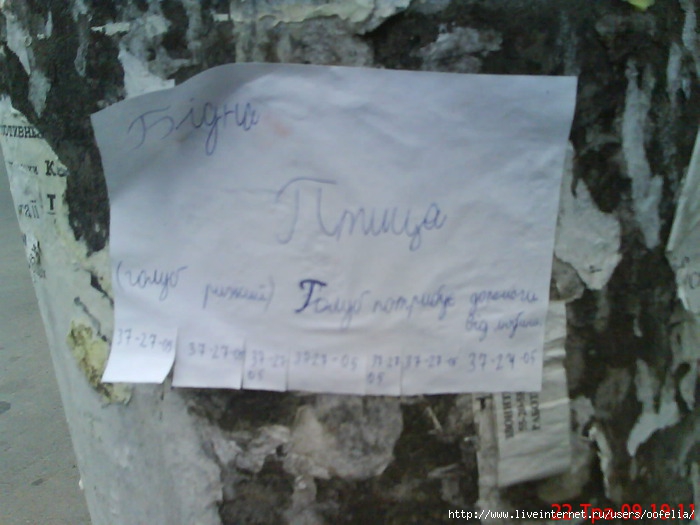 Бідна
Птица
(голуб рижий) Голуб потрибує допомоги
від людини
37-27-05 37-27-05 37-27-05 37-27-05 37-27-05 37-27-05 37-27-05
http://www.liveinternet.ru/users/oofelia/